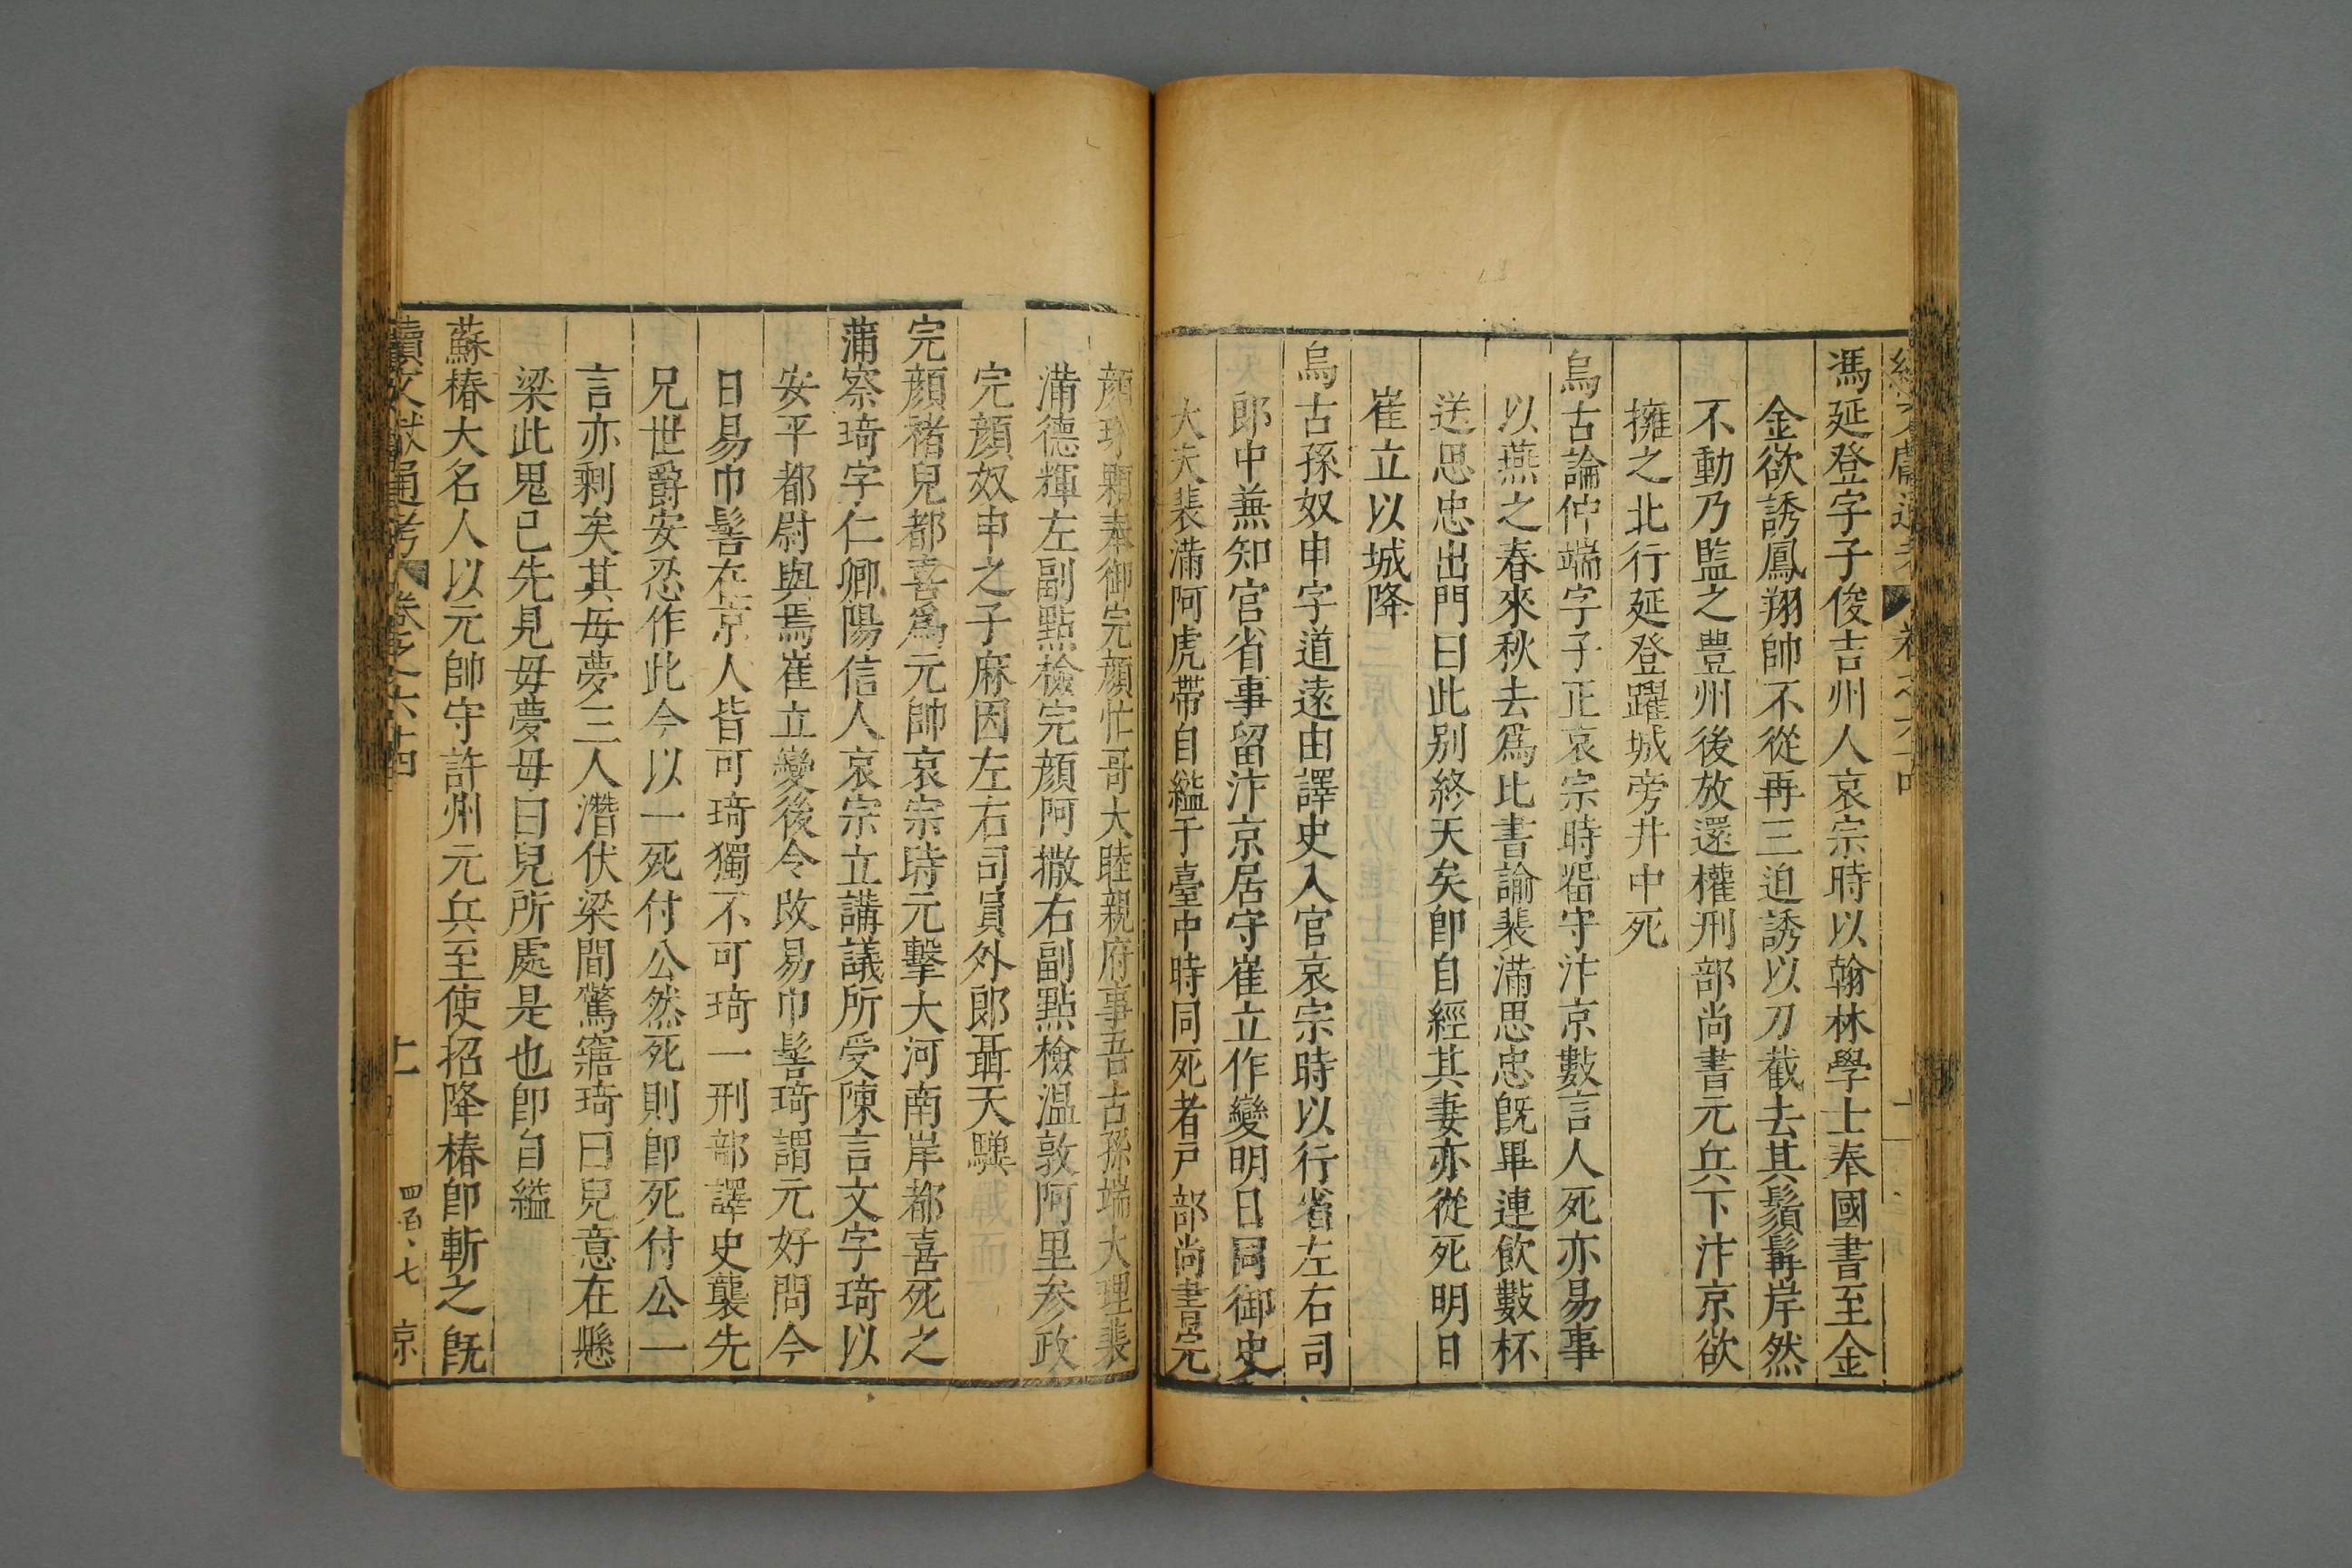 馮延登字子俊吉州人哀宗時以翰林學士奉國書至金
金欲誘鳳翔帥不從再三迫誘以刀截去其鬚髯岸然
不動乃監之豐州後放還權刑部尚書元兵下汴京欲
擁之北行延登躍城旁井中死
烏古論仲端字子正哀宗時留守汴京數言人死亦易事
以燕之春來秋去爲比書諭裴滿思忠旣畢連飲數杯
送思忠出門曰此别終天矣卽自經其妻亦從死明日
崔立以城降
烏古孫奴申字道遠由譯史入官哀宗時以行省左右司
郎中兼知官省事留汴京居守崔立作變明日同御史
大夫裴滿阿虎帶自縊于臺中時同死者戸部尚書完
顔珠顆奉御完顔忙哥大睦親府事吾古孫端大理裴
滿德輝左副點檢完顔阿撒右副點檢温敦阿里参政
完顔奴申之子麻因左右司員外郎聶天驥
完顔褚兒都喜爲元帥哀宗時元擊大河南岸都喜死之
蒲察琦字仁卿陽信人哀宗立講議所受陳言文字琦以
安平都尉與焉崔立變後令改易巾髻琦謂元好問今
日易巾髻在京人皆可琦獨不可琦一刑部譯史襲先
兄世爵安忍作此今以一死付公然死則卽死付公一
言亦剩矣其毋夢三人潛伏梁間驚寤琦曰兒意在懸
梁此鬼已先見毋夢毋曰兒所處是也卽自縊
蘇椿大名人以元帥守許州元兵至使招降椿卽斬之旣
續文獻通考 卷之六十四
四百七 京